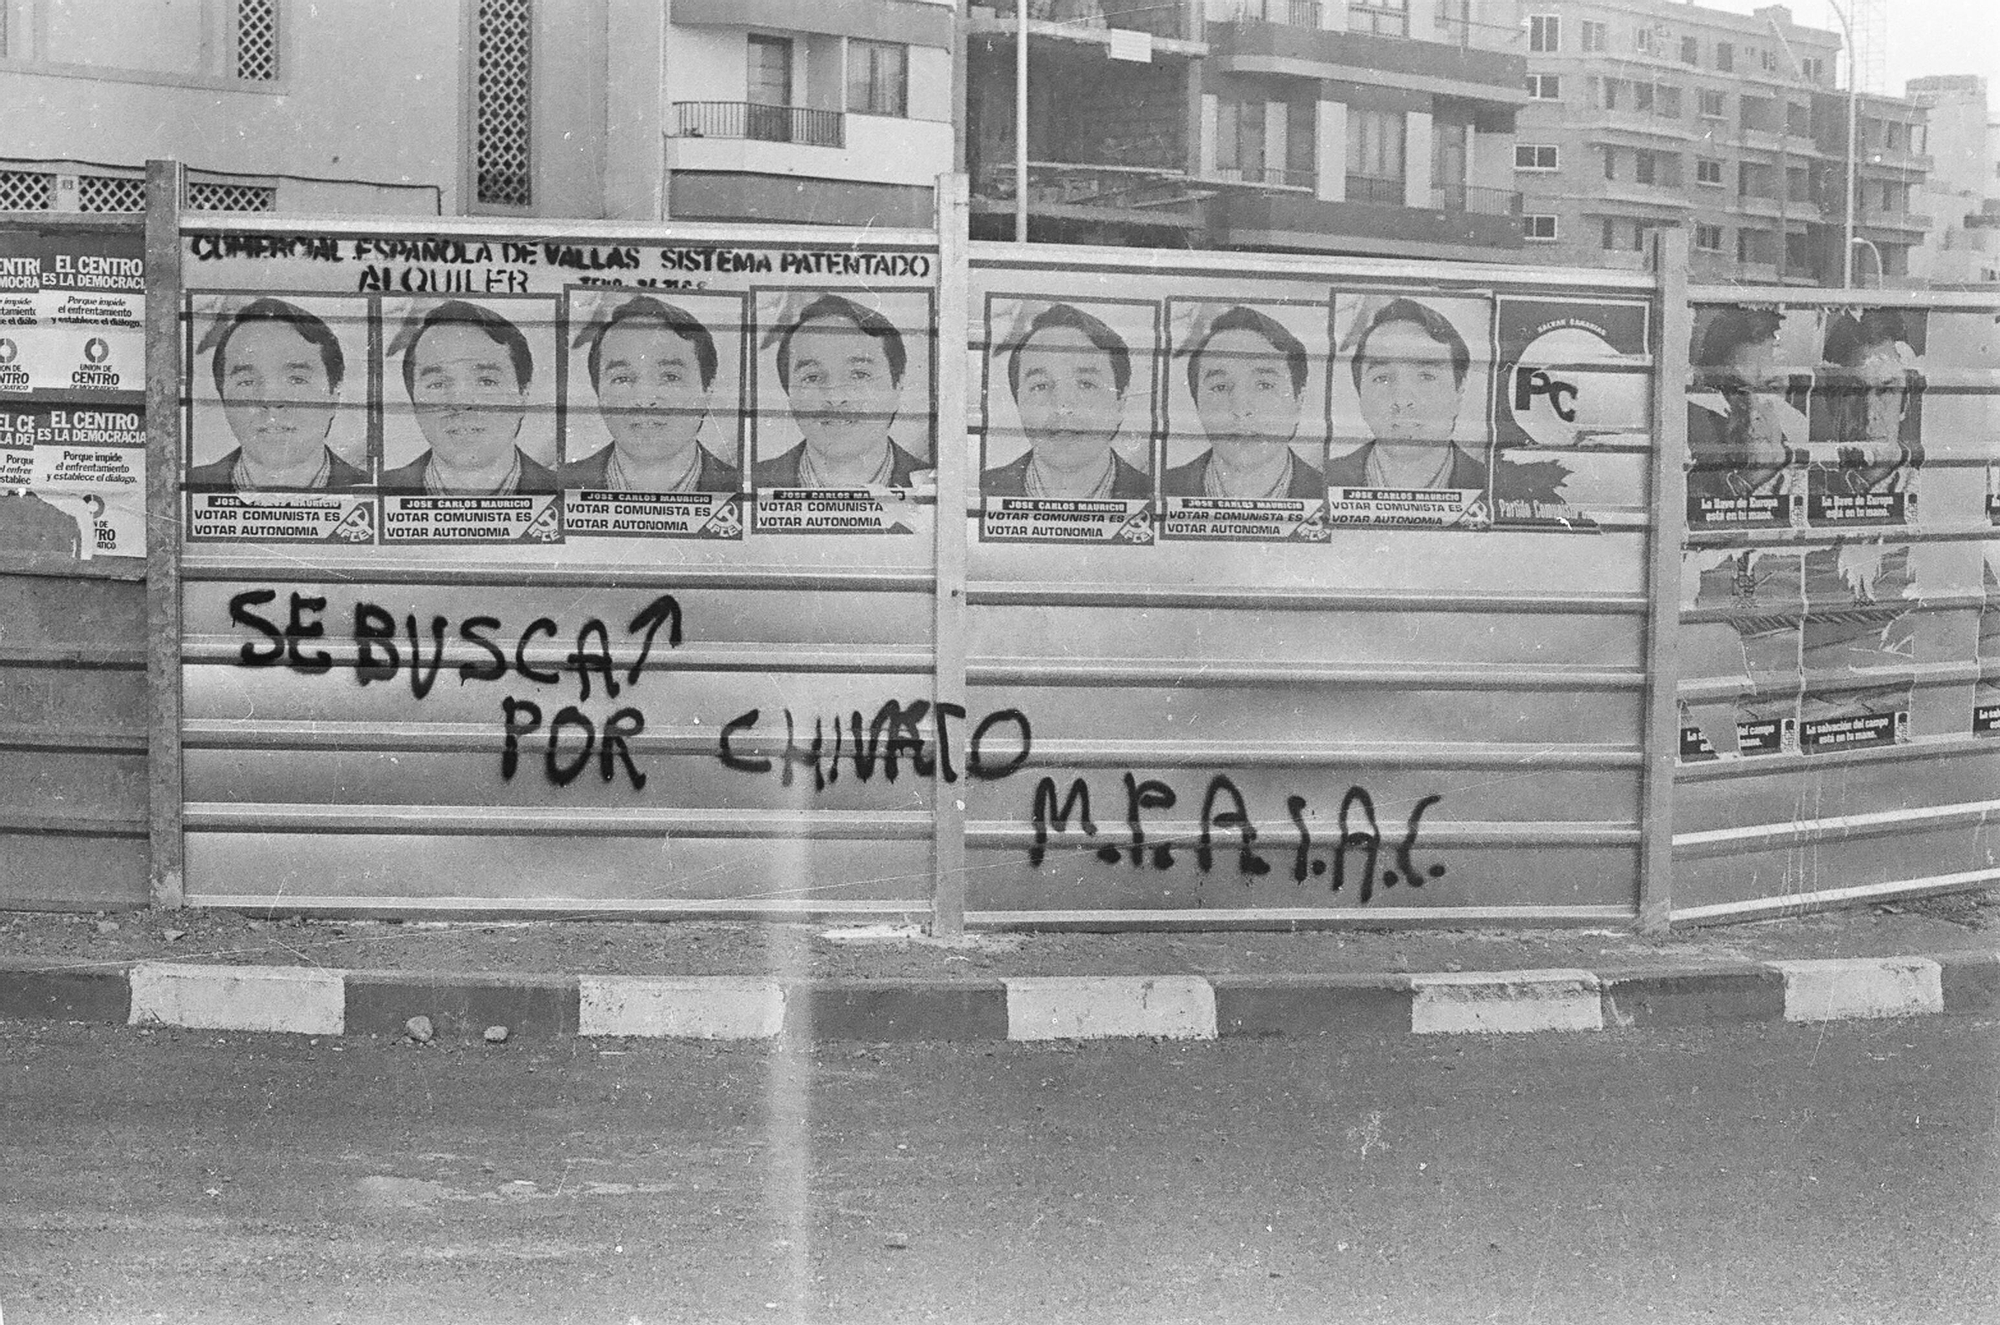 COMERCIAL ESPAÑOLA DE VALLAS SISTEMA PATENTADO
ALQUILER
EL CENTRO
ES LA DEMOCRACIA
Porque impide
el enfrentamiento
y establece el diálogo.
UNION DE
CENTRO
EL CENTRO
ES LA DEMOCRACIA
Porque impide
el enfrentamiento
y establece el dialogo.
JOSE CARLOS MAURICIO
VOTAR COMUNISTA ES
VOTAR AUTONOMIA
PCE
JOSE CARLOS MAURICIO
VOTAR COMUNISTA ES
VOTAR AUTONOMIA
PCE
JOSE CARLOS MAURICIO
VOTAR COMUNISTA ES
VOTAR AUTONOMIA
PCE
JOSE CARLOS MA
VOTAR COMUNISTA
VOTAR AUTONOMIA
JOSE CARLOS MAURICIO
VOTAR COMUNISTA ES
VOTAR AUTONOMIA
PCE
JOSE CARLOS MAURICIO
VOTAR COMUNISTA ES
VOTAR AUTONOMIA
PCE
JOSE CARLOS MAURICIO
VOTAR COMUNISTA ES
VOTAR AUTONOMIA
PC
Partido Comunista
La llave de Europa
está en tu mano.
La llave de Europa
está en tu mano.
La salvación del campo
está en tu mano.
SE BUSCA ↑
POR CHIVATO
M.P.A.I.A.C.